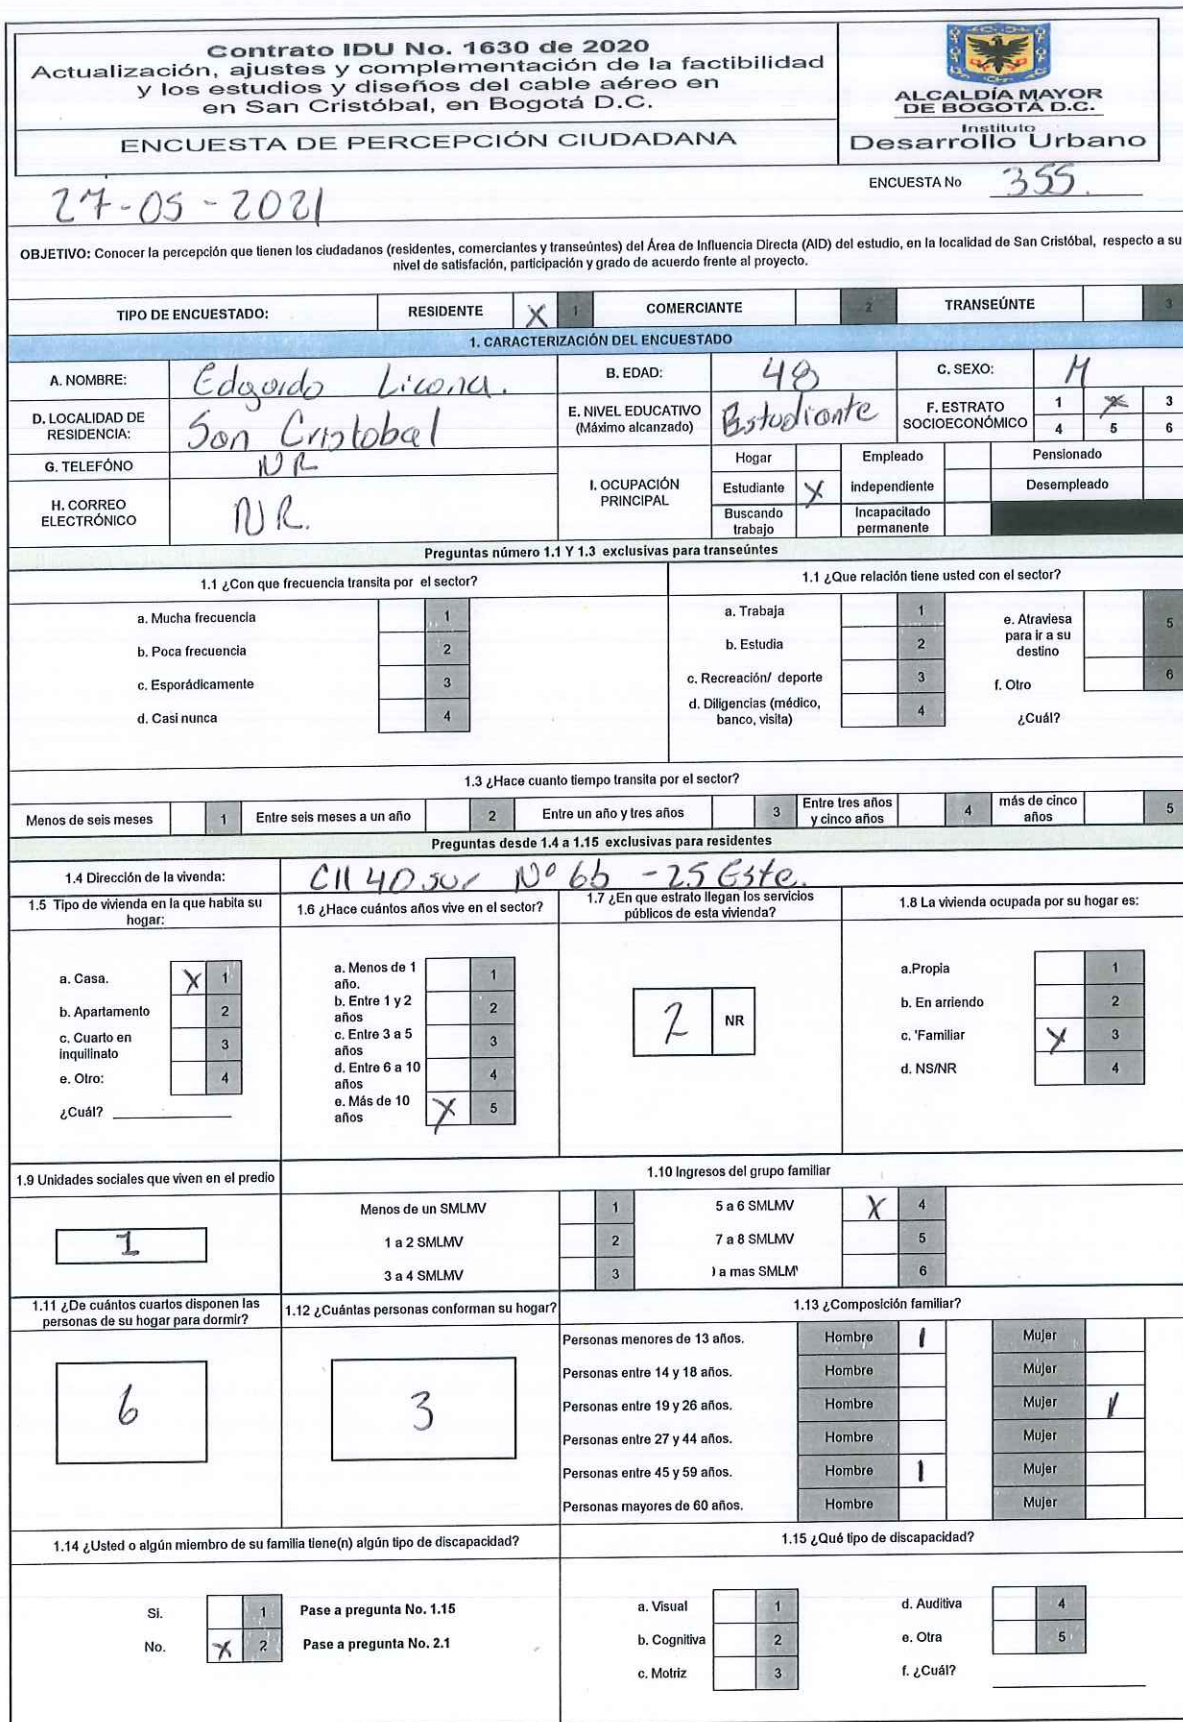 Contrato IDU No. 1630 de 2020
Actualización, ajustes y complementación de la factibilidad
y los estudios y diseños del cable aéreo en
en San Cristóbal, en Bogotá D.C.
ENCUESTA DE PERCEPCIÓN CIUDADANA
ALCALDÍA MAYOR
DE BOGOTÁ D.C.
Instituto
Desarrollo Urbano
27-05-2021
ENCUESTA No 355.
OBJETIVO: Conocer la percepción que tienen los ciudadanos (residentes, comerciantes y transeúntes) del Área de Influencia Directa (AID) del estudio, en la localidad de San Cristóbal, respecto a su
nivel de satisfacción, participación y grado de acuerdo frente al proyecto.
TIPO DE ENCUESTADO: RESIDENTE X 1 COMERCIANTE 2 TRANSEÚNTE 3
1. CARACTERIZACIÓN DEL ENCUESTADO
A. NOMBRE: Edgardo Licona. B. EDAD: 48 C. SEXO: M
D. LOCALIDAD DE
RESIDENCIA: San Cristobal
E. NIVEL EDUCATIVO
(Máximo alcanzado) Estudiante
F. ESTRATO
SOCIOECONÓMICO
1 X 3
4 5 6
G. TELEFÓNO NR
H. CORREO
ELECTRÓNICO NR.
I. OCUPACIÓN
PRINCIPAL
Hogar Empleado Pensionado
Estudiante X independiente Desempleado
Buscando
trabajo
Incapacitado
permanente
Preguntas número 1.1 Y 1.3 exclusivas para transeúntes
1.1 ¿Con que frecuencia transita por el sector?
a. Mucha frecuencia 1
b. Poca frecuencia 2
c. Esporádicamente 3
d. Casi nunca 4
1.1 ¿Que relación tiene usted con el sector?
a. Trabaja 1
b. Estudia 2
c. Recreación/ deporte 3
d. Diligencias (médico,
banco, visita) 4
e. Atraviesa
para ir a su
destino 5
f. Otro 6
¿Cuál?
1.3 ¿Hace cuanto tiempo transita por el sector?
Menos de seis meses 1 Entre seis meses a un año 2 Entre un año y tres años 3 Entre tres años
y cinco años 4 más de cinco
años 5
Preguntas desde 1.4 a 1.15 exclusivas para residentes
1.4 Dirección de la vivenda: Cll 40 sur Nº 6b - 25 Este.
1.5 Tipo de vivienda en la que habita su
hogar:
a. Casa. X 1
b. Apartamento 2
c. Cuarto en
inquilinato 3
e. Otro: 4
¿Cuál?
1.6 ¿Hace cuántos años vive en el sector?
a. Menos de 1
año. 1
b. Entre 1 y 2
años 2
c. Entre 3 a 5
años 3
d. Entre 6 a 10
años 4
e. Más de 10
años X 5
1.7 ¿En que estrato llegan los servicios
públicos de esta vivienda?
2 NR
1.8 La vivienda ocupada por su hogar es:
a.Propia 1
b. En arriendo 2
c. 'Familiar X 3
d. NS/NR 4
1.9 Unidades sociales que viven en el predio
1
1.10 Ingresos del grupo familiar
Menos de un SMLMV 1 5 a 6 SMLMV X 4
1 a 2 SMLMV 2 7 a 8 SMLMV 5
3 a 4 SMLMV 3 a mas SMLM 6
1.11 ¿De cuántos cuartos disponen las
personas de su hogar para dormir?
6
1.12 ¿Cuántas personas conforman su hogar?
3
1.13 ¿Composición familiar?
Personas menores de 13 años. Hombre 1 Mujer
Personas entre 14 y 18 años. Hombre Mujer
Personas entre 19 y 26 años. Hombre Mujer 1
Personas entre 27 y 44 años. Hombre Mujer
Personas entre 45 y 59 años. Hombre 1 Mujer
Personas mayores de 60 años. Hombre Mujer
1.14 ¿Usted o algún miembro de su familia tiene(n) algún tipo de discapacidad?
Si. 1 Pase a pregunta No. 1.15
No. X 2 Pase a pregunta No. 2.1
1.15 ¿Qué tipo de discapacidad?
a. Visual 1 d. Auditiva 4
b. Cognitiva 2 e. Otra 5
c. Motriz 3 f. ¿Cuál?